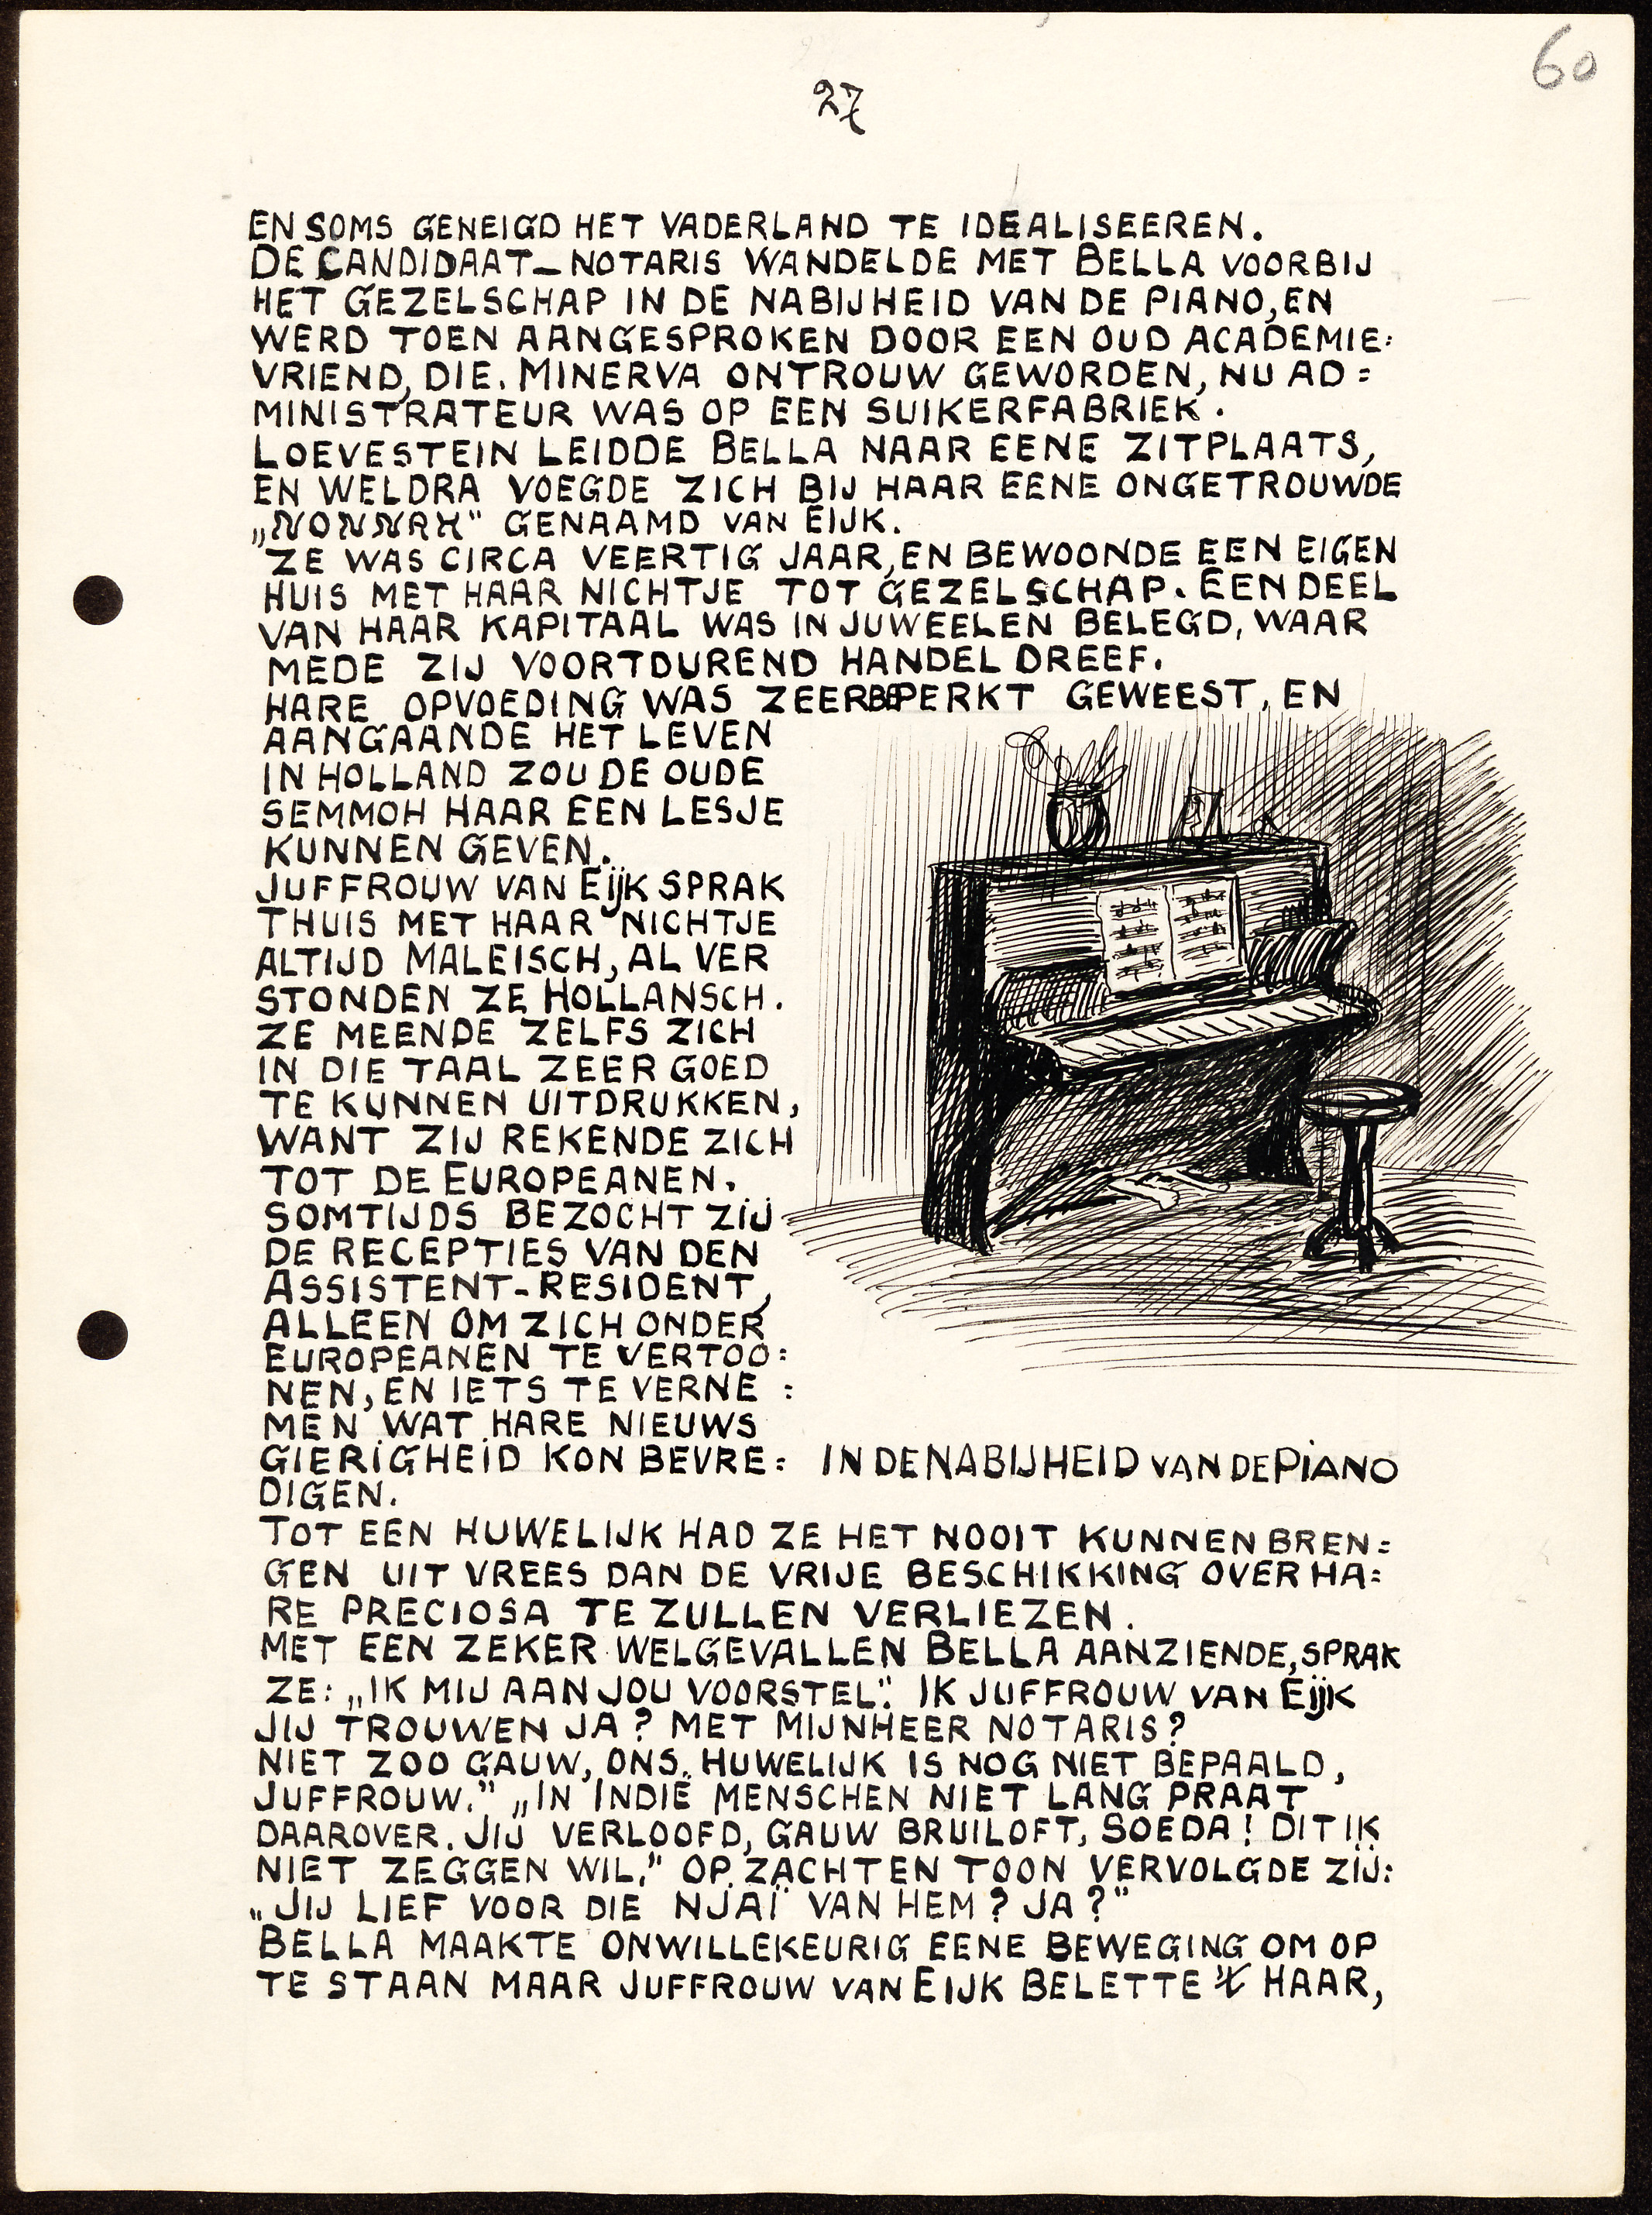 60
27
EN SOMS GENEIGD HET VADERLAND TE IDEALISEEREN.
DE CANDIDAAT-NOTARIS WANDELDE MET BELLA VOORBIJ
HET GEZELSCHAP IN DE NABIJHEID VAN DE PIANO, EN
WERD TOEN AANGESPROKEN DOOR EEN OUD ACADEMIE:
VRIEND, DIE. MINERVA ONTROUW GEWORDEN, NU AD =
MINISTRATEUR WAS OP EEN SUIKERFABRIEK.
LOEVESTEIN LEIDDE BELLA NAAR EENE ZITPLAATS,
EN WELDRA VOEGDE ZICH BIJ HAAR EENE ONGETROUWDE
„NONNAH" GENAAMD VAN EIJK.
ZE WAS CIRCA VEERTIG JAAR, EN BEWOONDE EEN EIGEN
HUIS MET HAAR NICHTJE TOT GEZELSCHAP. EEN DEEL
VAN HAAR KAPITAAL WAS IN JUWEELEN BELEGD, WAAR
MEDE ZIJ VOORTDUREND HANDEL DREEF.
HARE OPVOEDING WAS ZEER BEPERKT GEWEEST, EN
AANGAANDE HET LEVEN
IN HOLLAND ZOU DE OUDE
SEMMOH HAAR EEN LESJE
KUNNEN GEVEN.
JUFFROUW VAN EIJK SPRAK
THUIS MET HAAR NICHTJE
ALTIJD MALEISCH, AL VER
STONDEN ZE HOLLANSCH.
ZE MEENDE ZELFS ZICH
IN DIE TAAL ZEER GOED
TE KUNNEN UITDRUKKEN,
WANT ZIJ REKENDE ZICH
TOT DE EUROPEANEN.
SOMTIJDS BEZOCHT ZIJ
DE RECEPTIES VAN DEN
ASSISTENT-RESIDENT,
ALLEEN OM ZICH ONDER
EUROPEANEN TE VERTOO:
NEN, EN IETS TE VERNE :
MEN WAT HARE NIEUWS
GIERIGHEID KON BEVRE:
DIGEN.
IN DE NABIJHEID VAN DE PIANO
TOT EEN HUWELIJK HAD ZE HET NOOIT KUNNEN BREN=
GEN UIT VREES DAN DE VRIJE BESCHIKKING OVER HA:
RE PRECIOSA TE ZULLEN VERLIEZEN.
MET EEN ZEKER WELGEVALLEN BELLA AANZIENDE, SPRAK
ZE: „IK MIJ AAN JOU VOORSTEL". IK JUFFROUW VAN EIJK
JIJ TROUWEN JA? MET MIJNHEER NOTARIS?
NIET ZOO GAUW, ONS HUWELIJK IS NOG NIET BEPAALD,
JUFFROUW." „IN INDIË MENSCHEN NIET LANG PRAAT
DAAROVER. JIJ VERLOOFD, GAUW BRUILOFT, SOEDA! DIT IK
NIET ZEGGEN WIL." OP ZACHTEN TOON VERVOLGDE ZIJ:
„JIJ LIEF VOOR DIE NJAÏ VAN HEM? JA?"
BELLA MAAKTE ONWILLEKEURIG EENE BEWEGING OM OP
TE STAAN MAAR JUFFROUW VAN EIJK BELETTE 't HAAR,